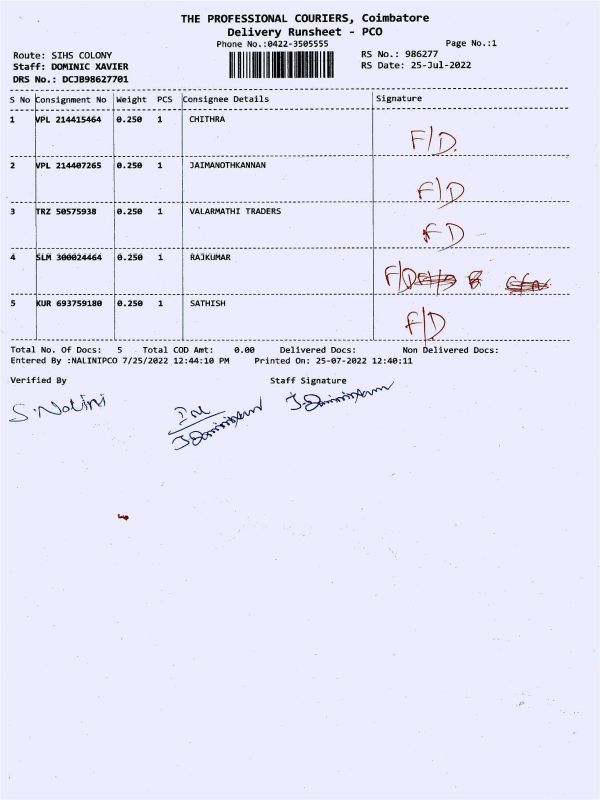 THE PROFESSIONAL COURIERS, Coimbatore
Delivery Runsheet - PCO
Phone No.:0422-3505555 Page No.:1
Route: SIHS COLONY RS No.: 986277
Staff: DOMINIC XAVIER RS Date: 25-Jul-2022
DRS No.: DCJB98627701
S No Consignment No Weight PCS Consignee Details Signature
1 VPL 214415464 0.250 1 CHITHRA F/D.
2 VPL 214407265 0.250 1 JAIMANOTHKANNAN F/D
3 TRZ 50575938 0.250 1 VALARMATHI TRADERS FD
4 SLM 300024464 0.250 1 RAJKUMAR F/D
5 KUR 693759180 0.250 1 SATHISH F/D
Total No. Of Docs: 5 Total COD Amt: 0.00 Delivered Docs: Non Delivered Docs:
Entered By :NALINIPCO 7/25/2022 12:44:10 PM Printed On: 25-07-2022 12:40:11
Verified By Staff Signature
S.Nalini